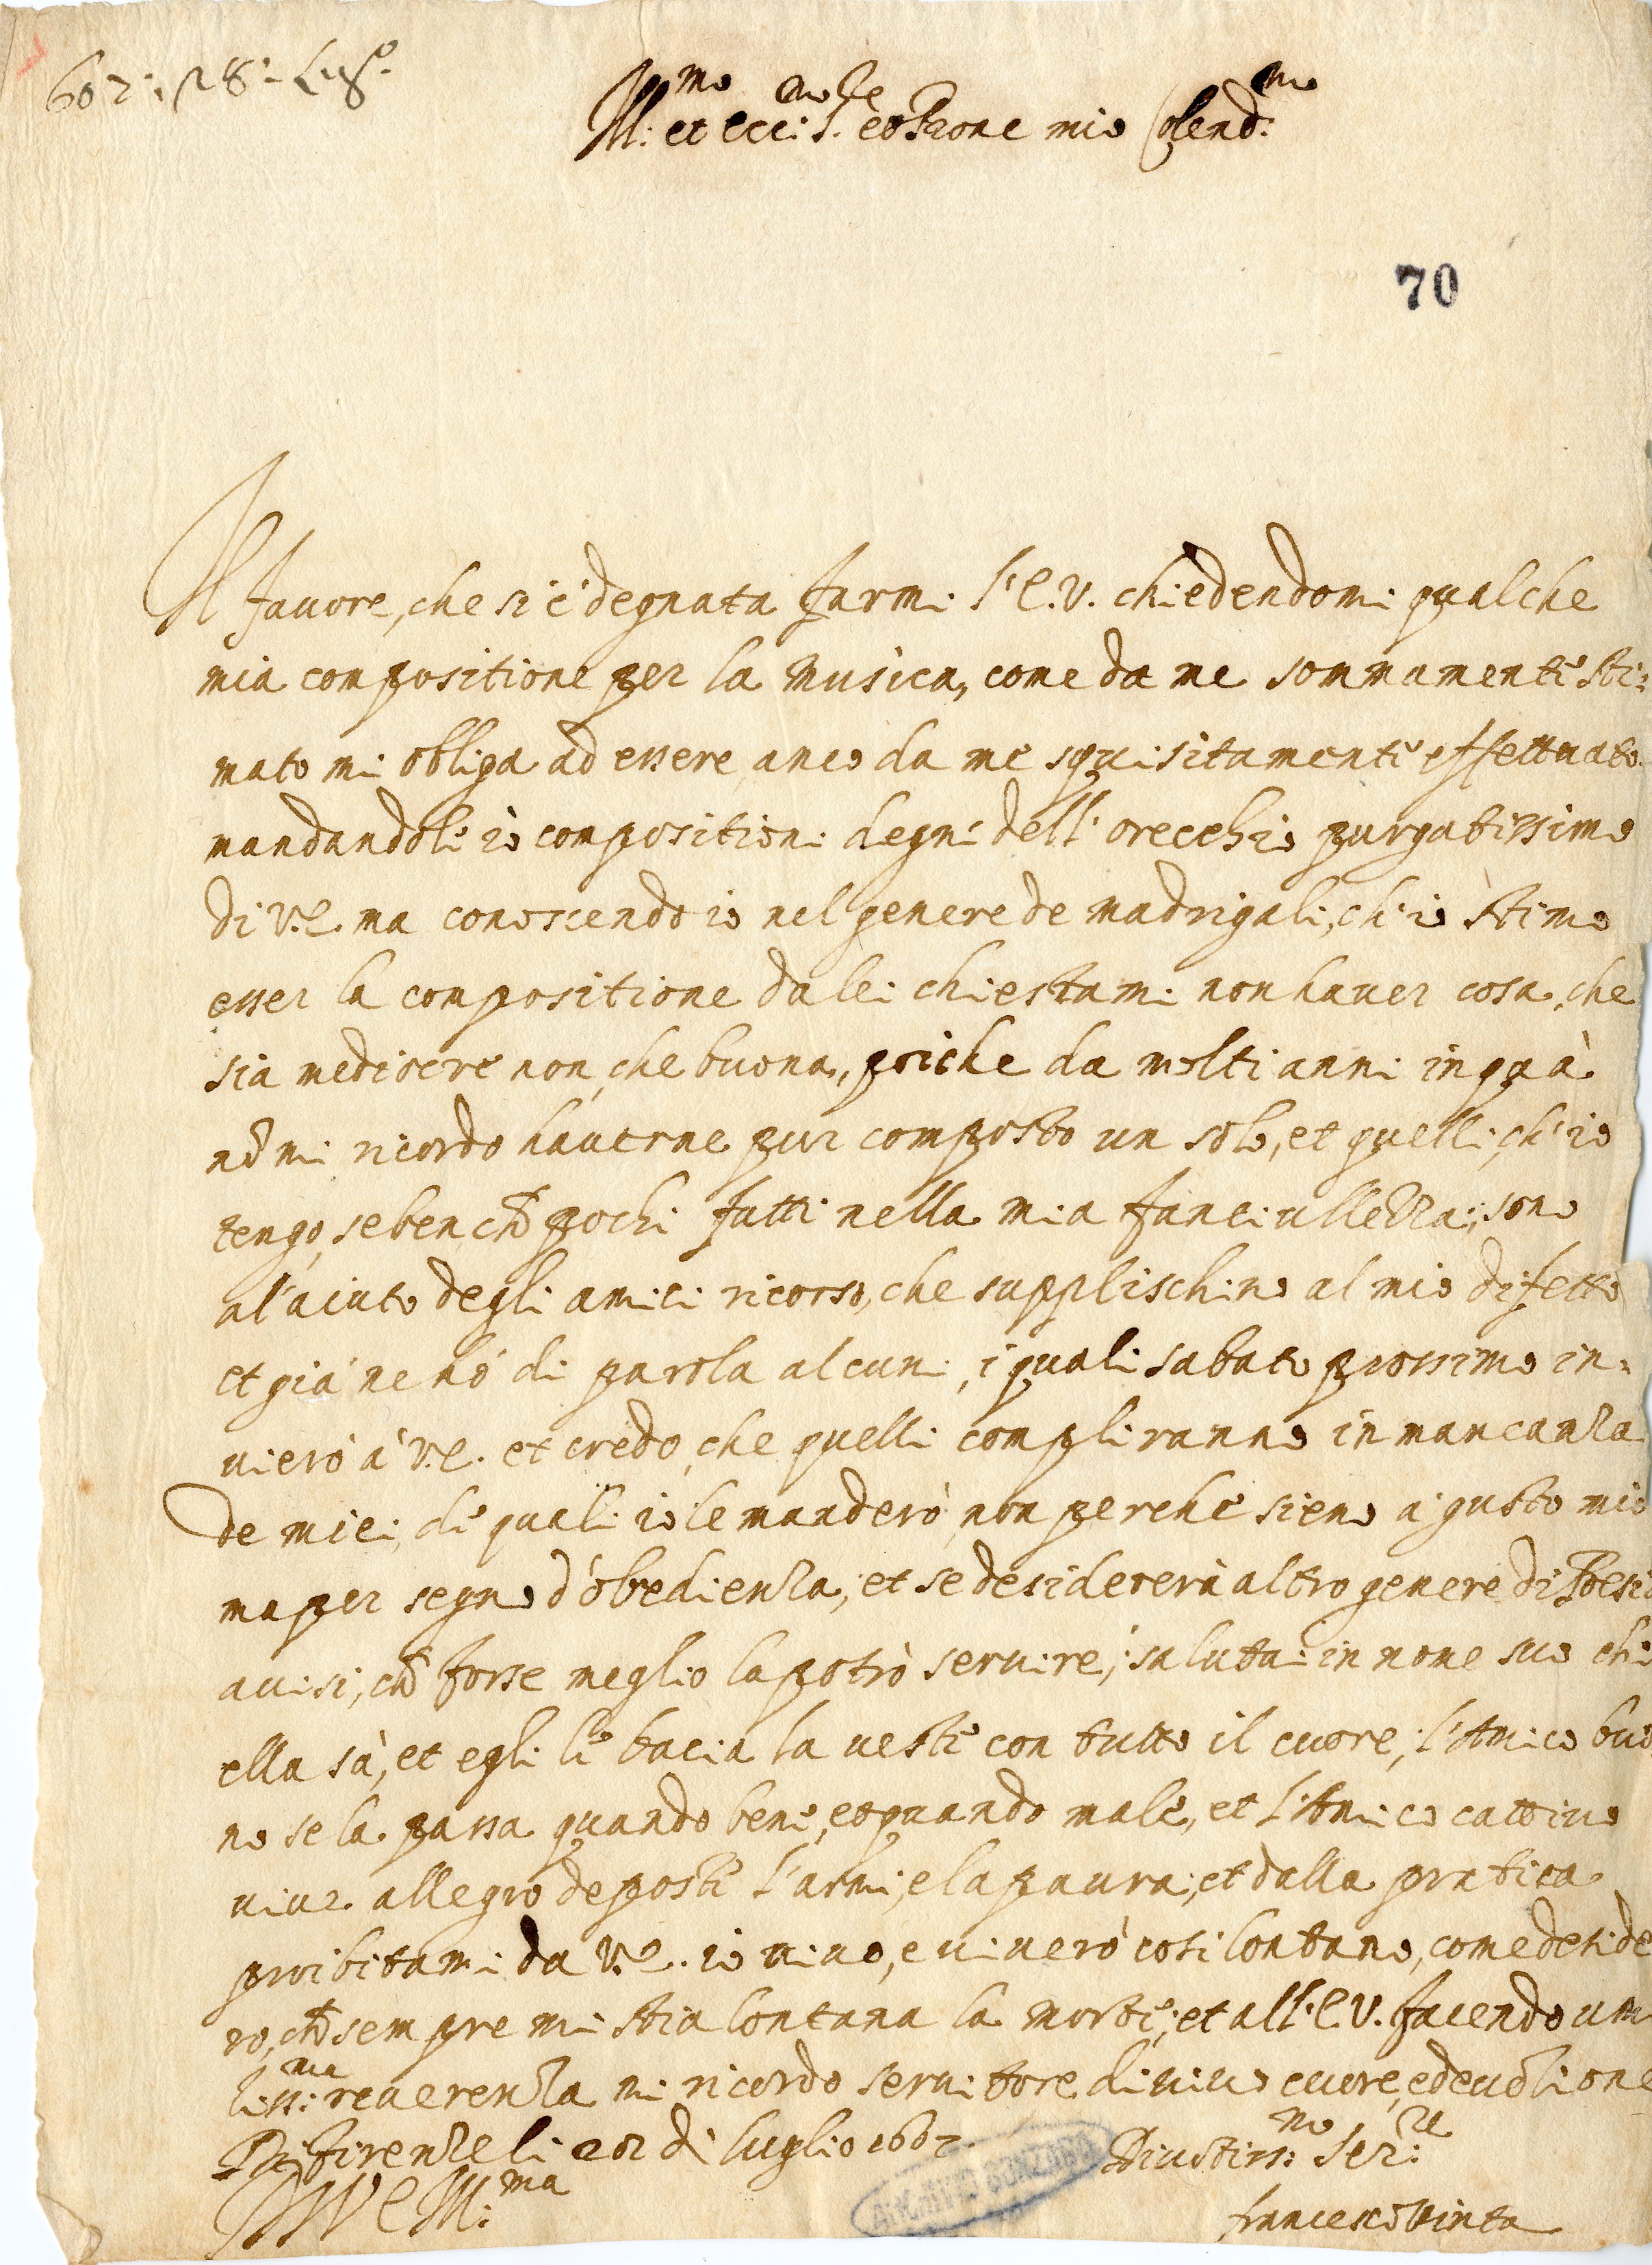 602: 28: Lugᵒ
Ill:ᵐᵒ et ecc:ᵐᵒ S.ʳᵉ et Prone mio Colend:ᵐᵒ
70
Il favore, che si è degnata farmi l'E.V. chiedendomi qualche
mia compositione per la Musica, come da me sommamente sti:
mato mi obliga ad essere anco da me squisitamente effettuato
mandandoli io compositioni degni dell'orecchio purgatissimo
di V.E. ma conoscendo io nel genere de madrigali, ch'io stimo
esser la compositione da lei chiestami non haver cosa, che
sia mediocre non, che buona, poiche da molti anni in quà
nō mi ricordo haverne pur composto un solo, et quelli, ch'io
tengo, seben ch̄ pochi fatti nella mia fanciullezza; sono
al'aiuto degli amici ricorso, che supplischino al mio difetto
et già ne hò di parola alcuni, i quali sabato prossimo in:
vierò à V.E. et credo, che quelli compliranno in mancanza
de miei, de quali io le manderò, non perche sieno a' gusto mio
ma per segno d'obedienza; et se desidererà altro genere di Poesia
avisi, ch̄ forse meglio la potrò servire; salutai in nome suo chi
ella sà, et egli le bacia la veste con tutto il cuore; l'Amico buo
no se la passa quando bene, et quando male, et l'Amico cattivo
vive allegro deposte l'armi, e la paura; et dalla pratica
proibitami da V.E. io vivo, e viverò cosi lontano, come deside
ro, ch̄ sempre mi stia lontana la morte; et all'E.V. facendo umi
liss:ᵐᵃ reverenza mi ricordo servitore di vivo cuore, e devotione
Di Firenze li 22 di luglio 1602.
D V E Ill:ᵐᵃ
Divotiss:ᵐᵒ Ser:ʳᵉ
francesco Vinta
ARCHIVIO GONZAGA